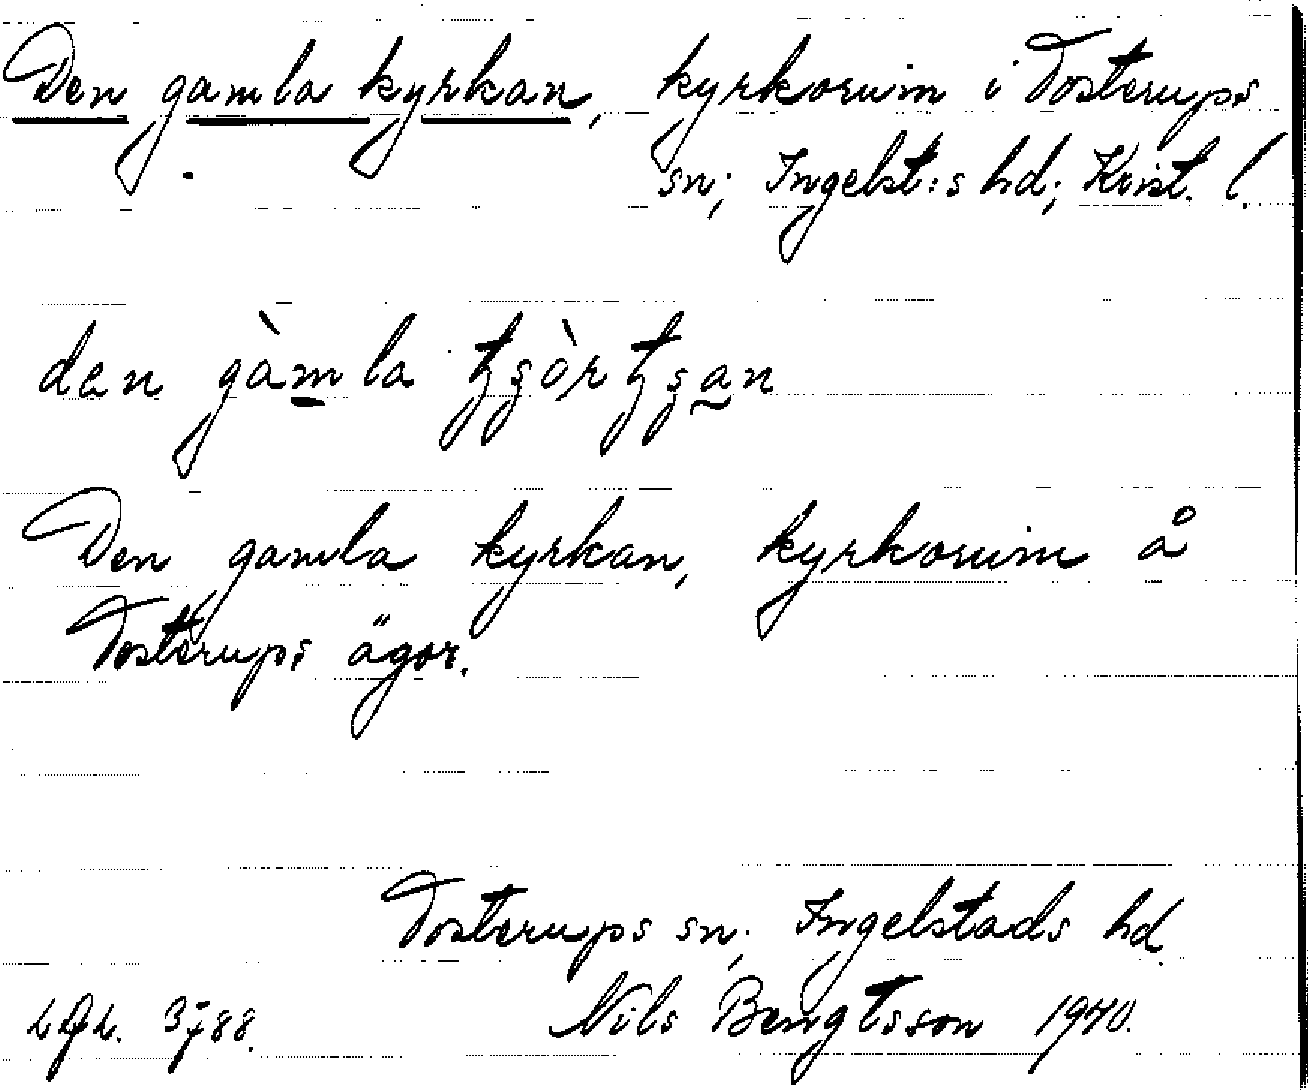 Den gamla kyrkan, kyrkoruin i Tosterups
sn; Ingelst:s hd; Krist. l.
den gàmla
Den gamla kyrkan, kyrkoruin å
Tosterups ägor.
Tosterups sn; Ingelstads hd.
Nils Bengtsson 1940.